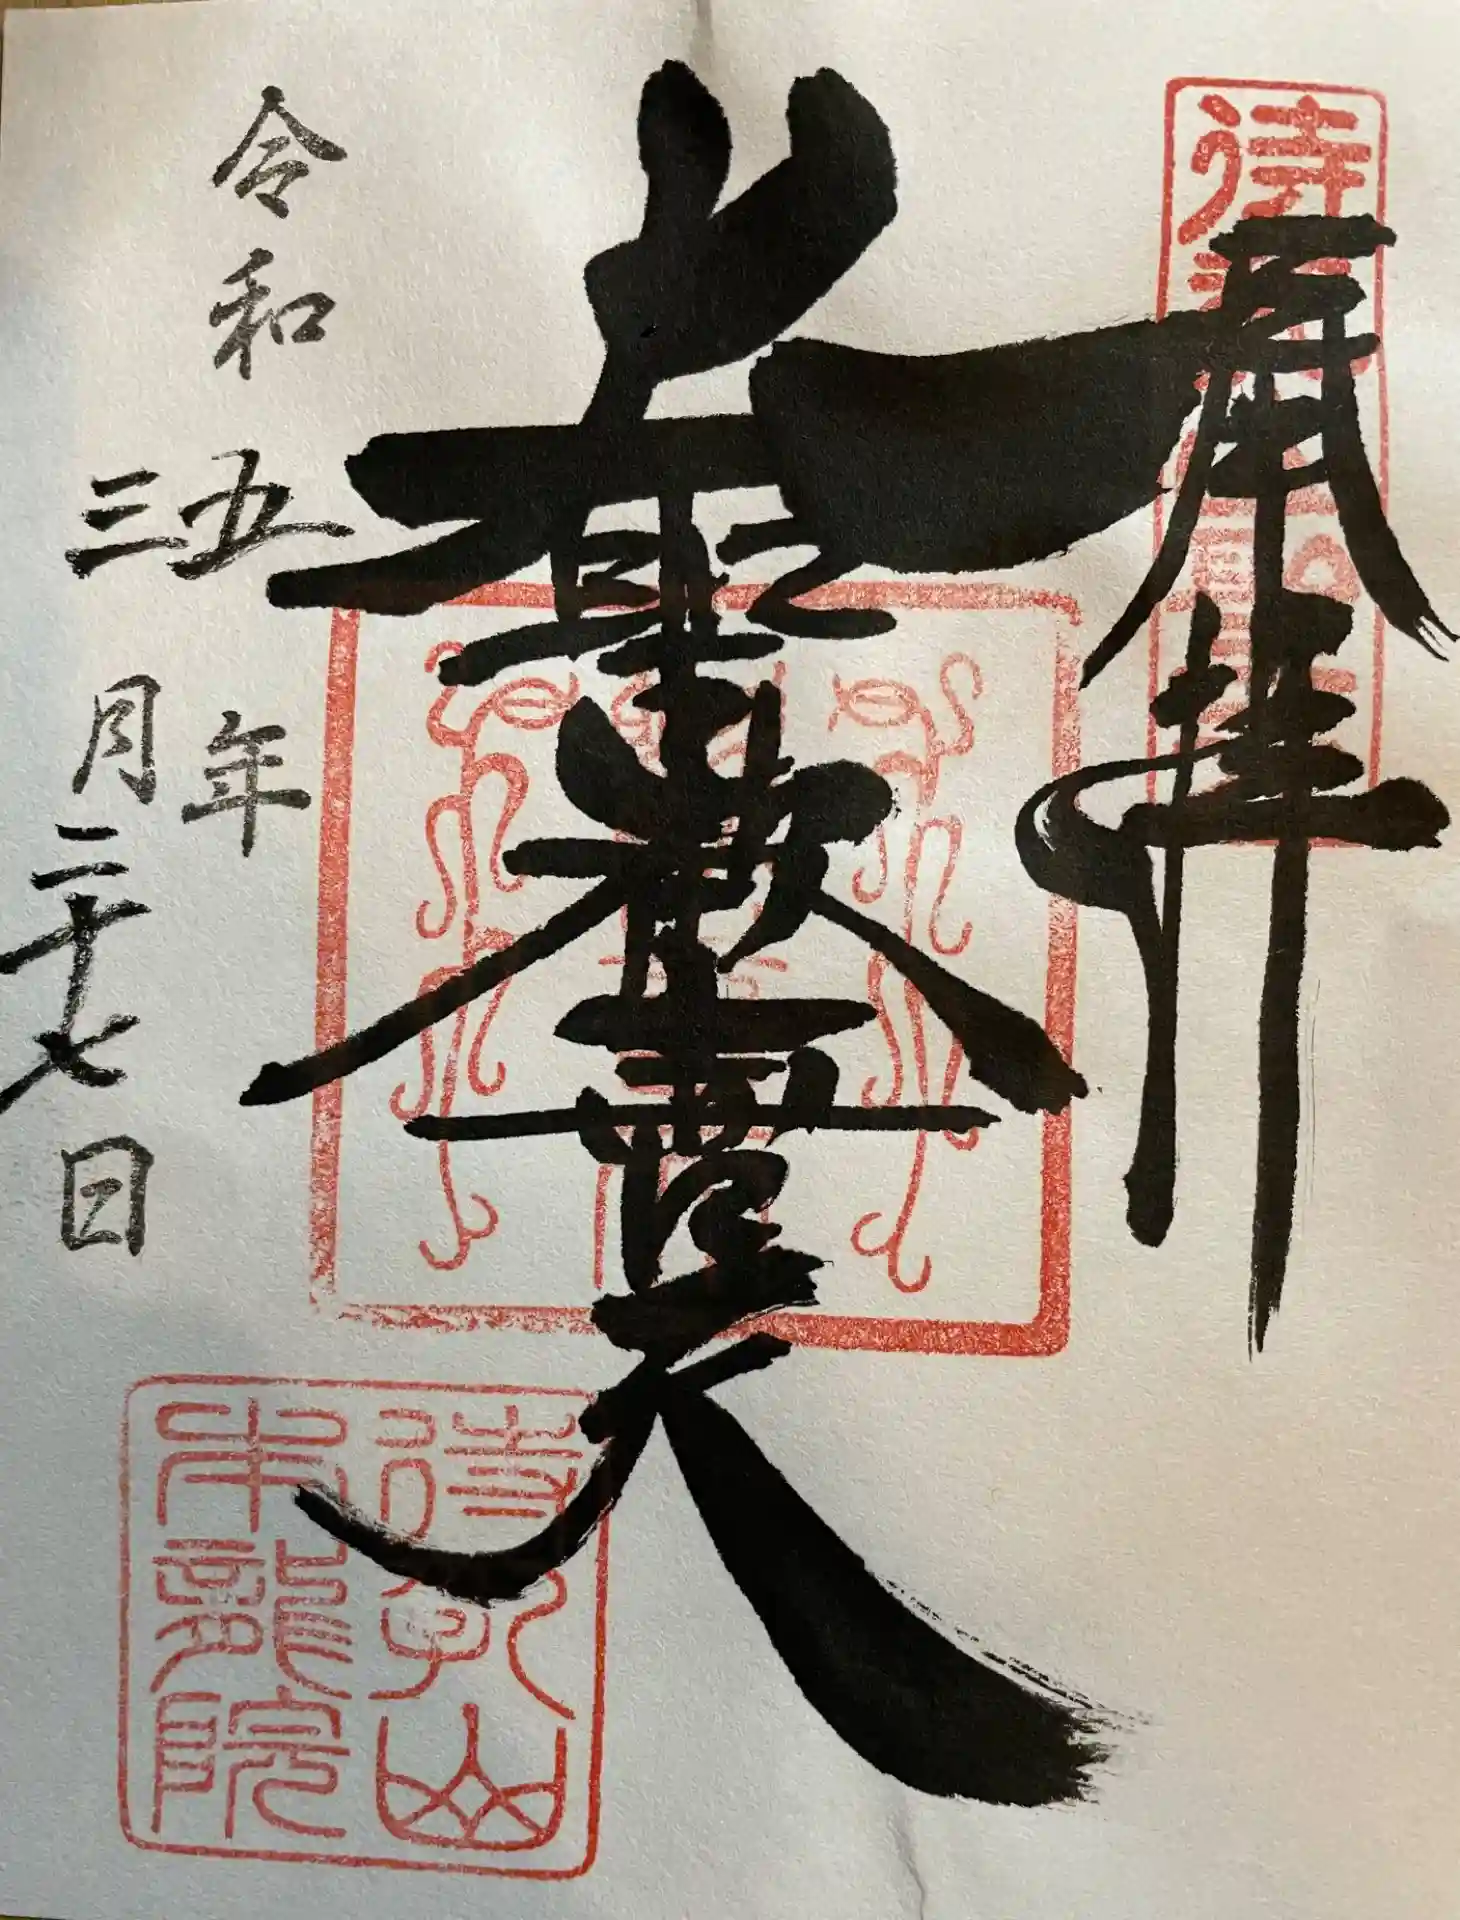 奉拝
大聖歓喜天
令和五年
三月二十七日
待乳山
本龍院